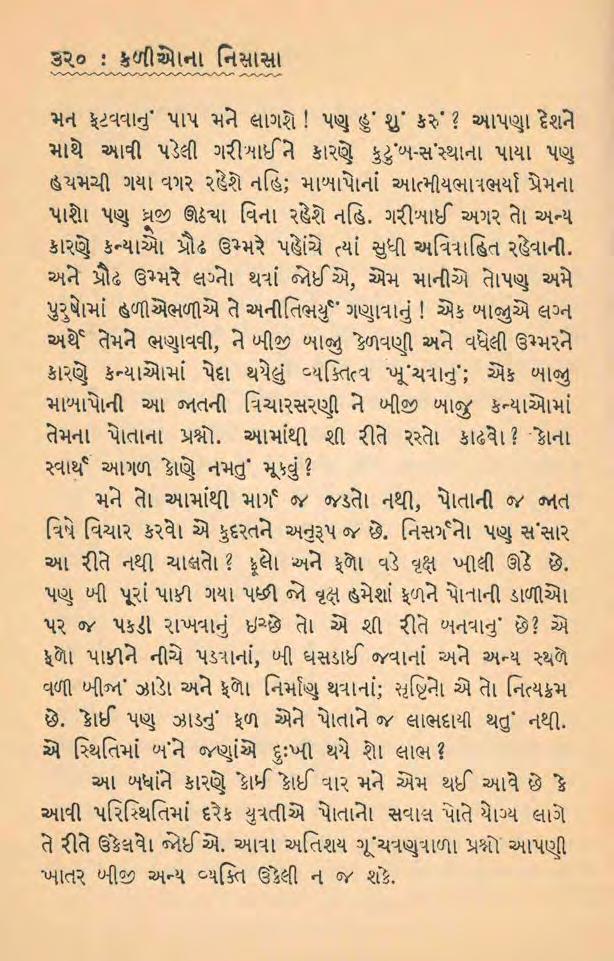 ૩૨૦ : કળીઓના નિસાસા
મન ફટવવાનું પાપ મને લાગશે ! પણ હું શું કરું ? આપણા દેશને
માથે આવી પડેલી ગરીબાઈને કારણે કુટુંબ-સંસ્થાના પાયા પણ
હચમચી ગયા વગર રહેશે નહિ; માબાપોનાં આત્મીયભાવભર્યા પ્રેમના
પાશો પણ ધ્રૂજી ઊઠ્યા વિના રહેશે નહિ. ગરીબાઈ અગર તો અન્ય
કારણે કન્યાઓ પ્રૌઢ ઉમ્મરે પહોંચે ત્યાં સુધી અવિવાહિત રહેવાની.
અને પ્રૌઢ ઉમ્મરે લગ્નો થવાં જોઈએ, એમ માનીએ તોપણ અમે
પુરુષોમાં હળીએભળીએ તે અનીતિભર્યું ગણાવાનું ! એક બાજુએ લગ્ન
અર્થે તેમને ભણાવવી, ને બીજી બાજુ કેળવણી અને વધેલી ઉમ્મરને
કારણે કન્યાઓમાં પેદા થયેલું વ્યક્તિત્વ ખૂંચવાનું; એક બાજુ
માબાપોની આ જાતની વિચારસરણી ને બીજી બાજુ કન્યાઓમાં
તેમના પોતાના પ્રશ્નો. આમાંથી શી રીતે રસ્તો કાઢવો ? કોના
સ્વાર્થ આગળ કોણે નમતું મૂકવું ?
મને તો આમાંથી માર્ગ જ જડતો નથી, પોતાની જ જાત
વિષે વિચાર કરવો એ કુદરતને અનુરૂપ જ છે. નિસર્ગનો પણ સંસાર
આ રીતે નથી ચાલતો ? ફૂલો અને ફળો વડે વૃક્ષ ખીલી ઊઠે છે.
પણ બી પૂરાં પાકી ગયા પછી જો વૃક્ષ હમેશાં ફળને પોતાની ડાળીઓ
પર જ પકડી રાખવાનું ઇચ્છે તો એ શી રીતે બનવાનું છે? એ
ફળો પાકીને નીચે પડવાનાં, બી ઘસડાઈ જવાનાં અને અન્ય સ્થળે
વળી બીજાં ઝાડો અને ફળો નિર્માણ થવાનાં; સૃષ્ટિનો એ તો નિત્યક્રમ
છે. કોઈ પણ ઝાડનું ફળ એને પોતાને જ લાભદાયી થતું નથી.
એ સ્થિતિમાં બંને જણાંએ દુઃખી થયે શો લાભ ?
આ બધાંને કારણે કોઈ કોઈ વાર મને એમ થઈ આવે છે કે
આવી પરિસ્થિતિમાં દરેક યુવતીએ પોતાનો સવાલ પોતે યોગ્ય લાગે
તે રીતે ઉકેલવો જોઈએ. આવા અતિશય ગૂંચવણવાળા પ્રશ્નો આપણી
ખાતર બીજી અન્ય વ્યક્તિ ઉકેલી ન જ શકે.